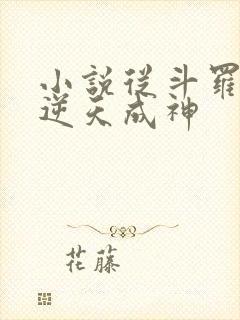 小說從斗羅
逆天成神
花藤